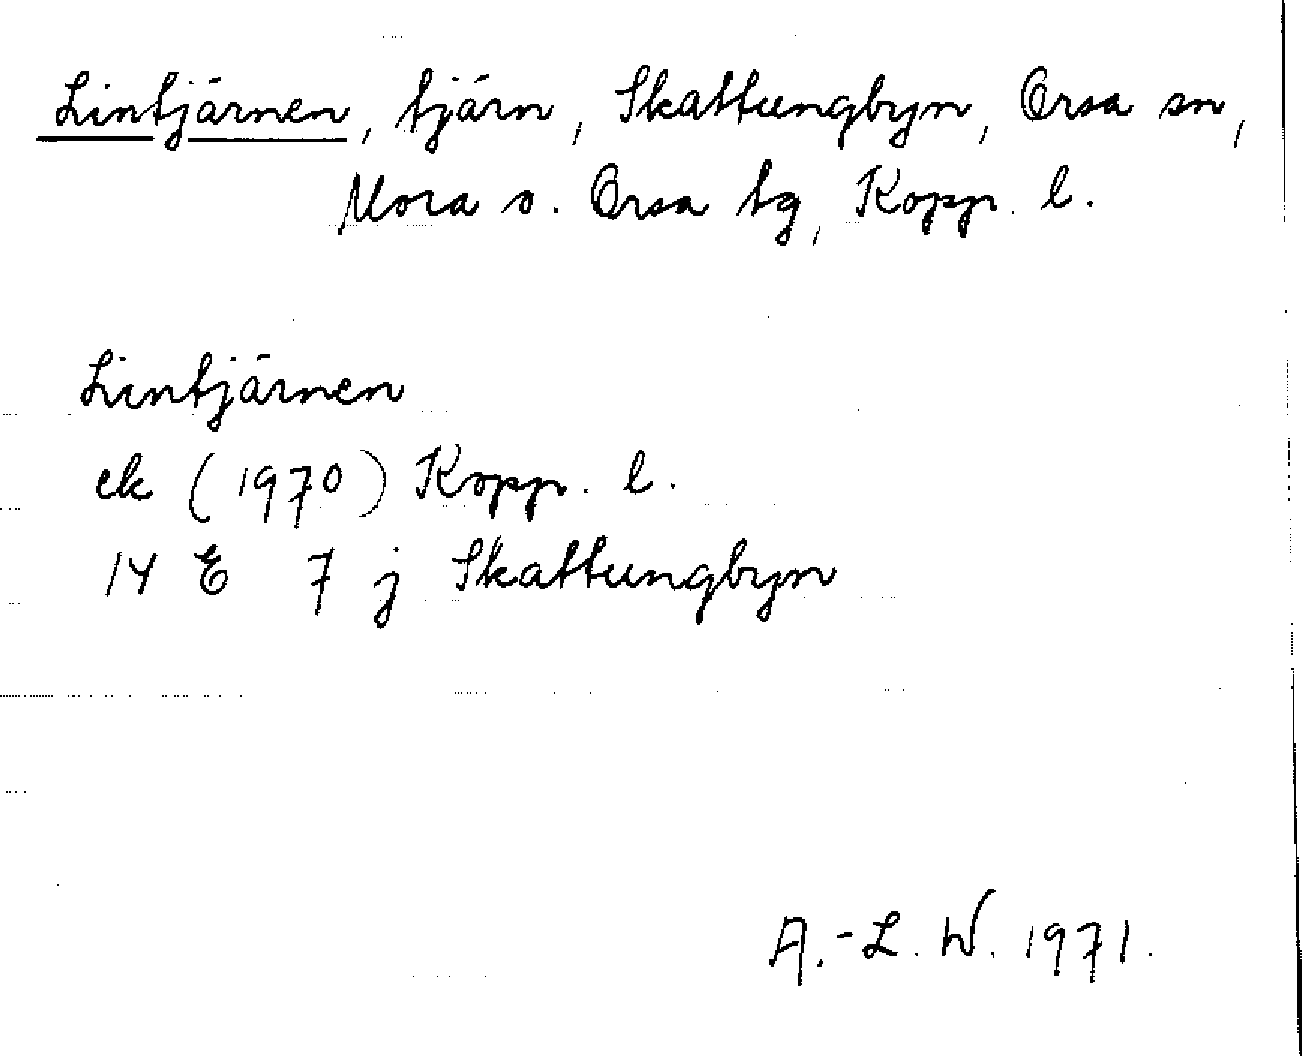 Lintjärnen, tjärn, Skattungbyn, Orsa sn,
Mora o. Orsa tg, Kopp. l.
Lintjärnen
ek (1970) Kopp. l.
14 E 7 j Skattungbyn
A.-L. W. 1971.